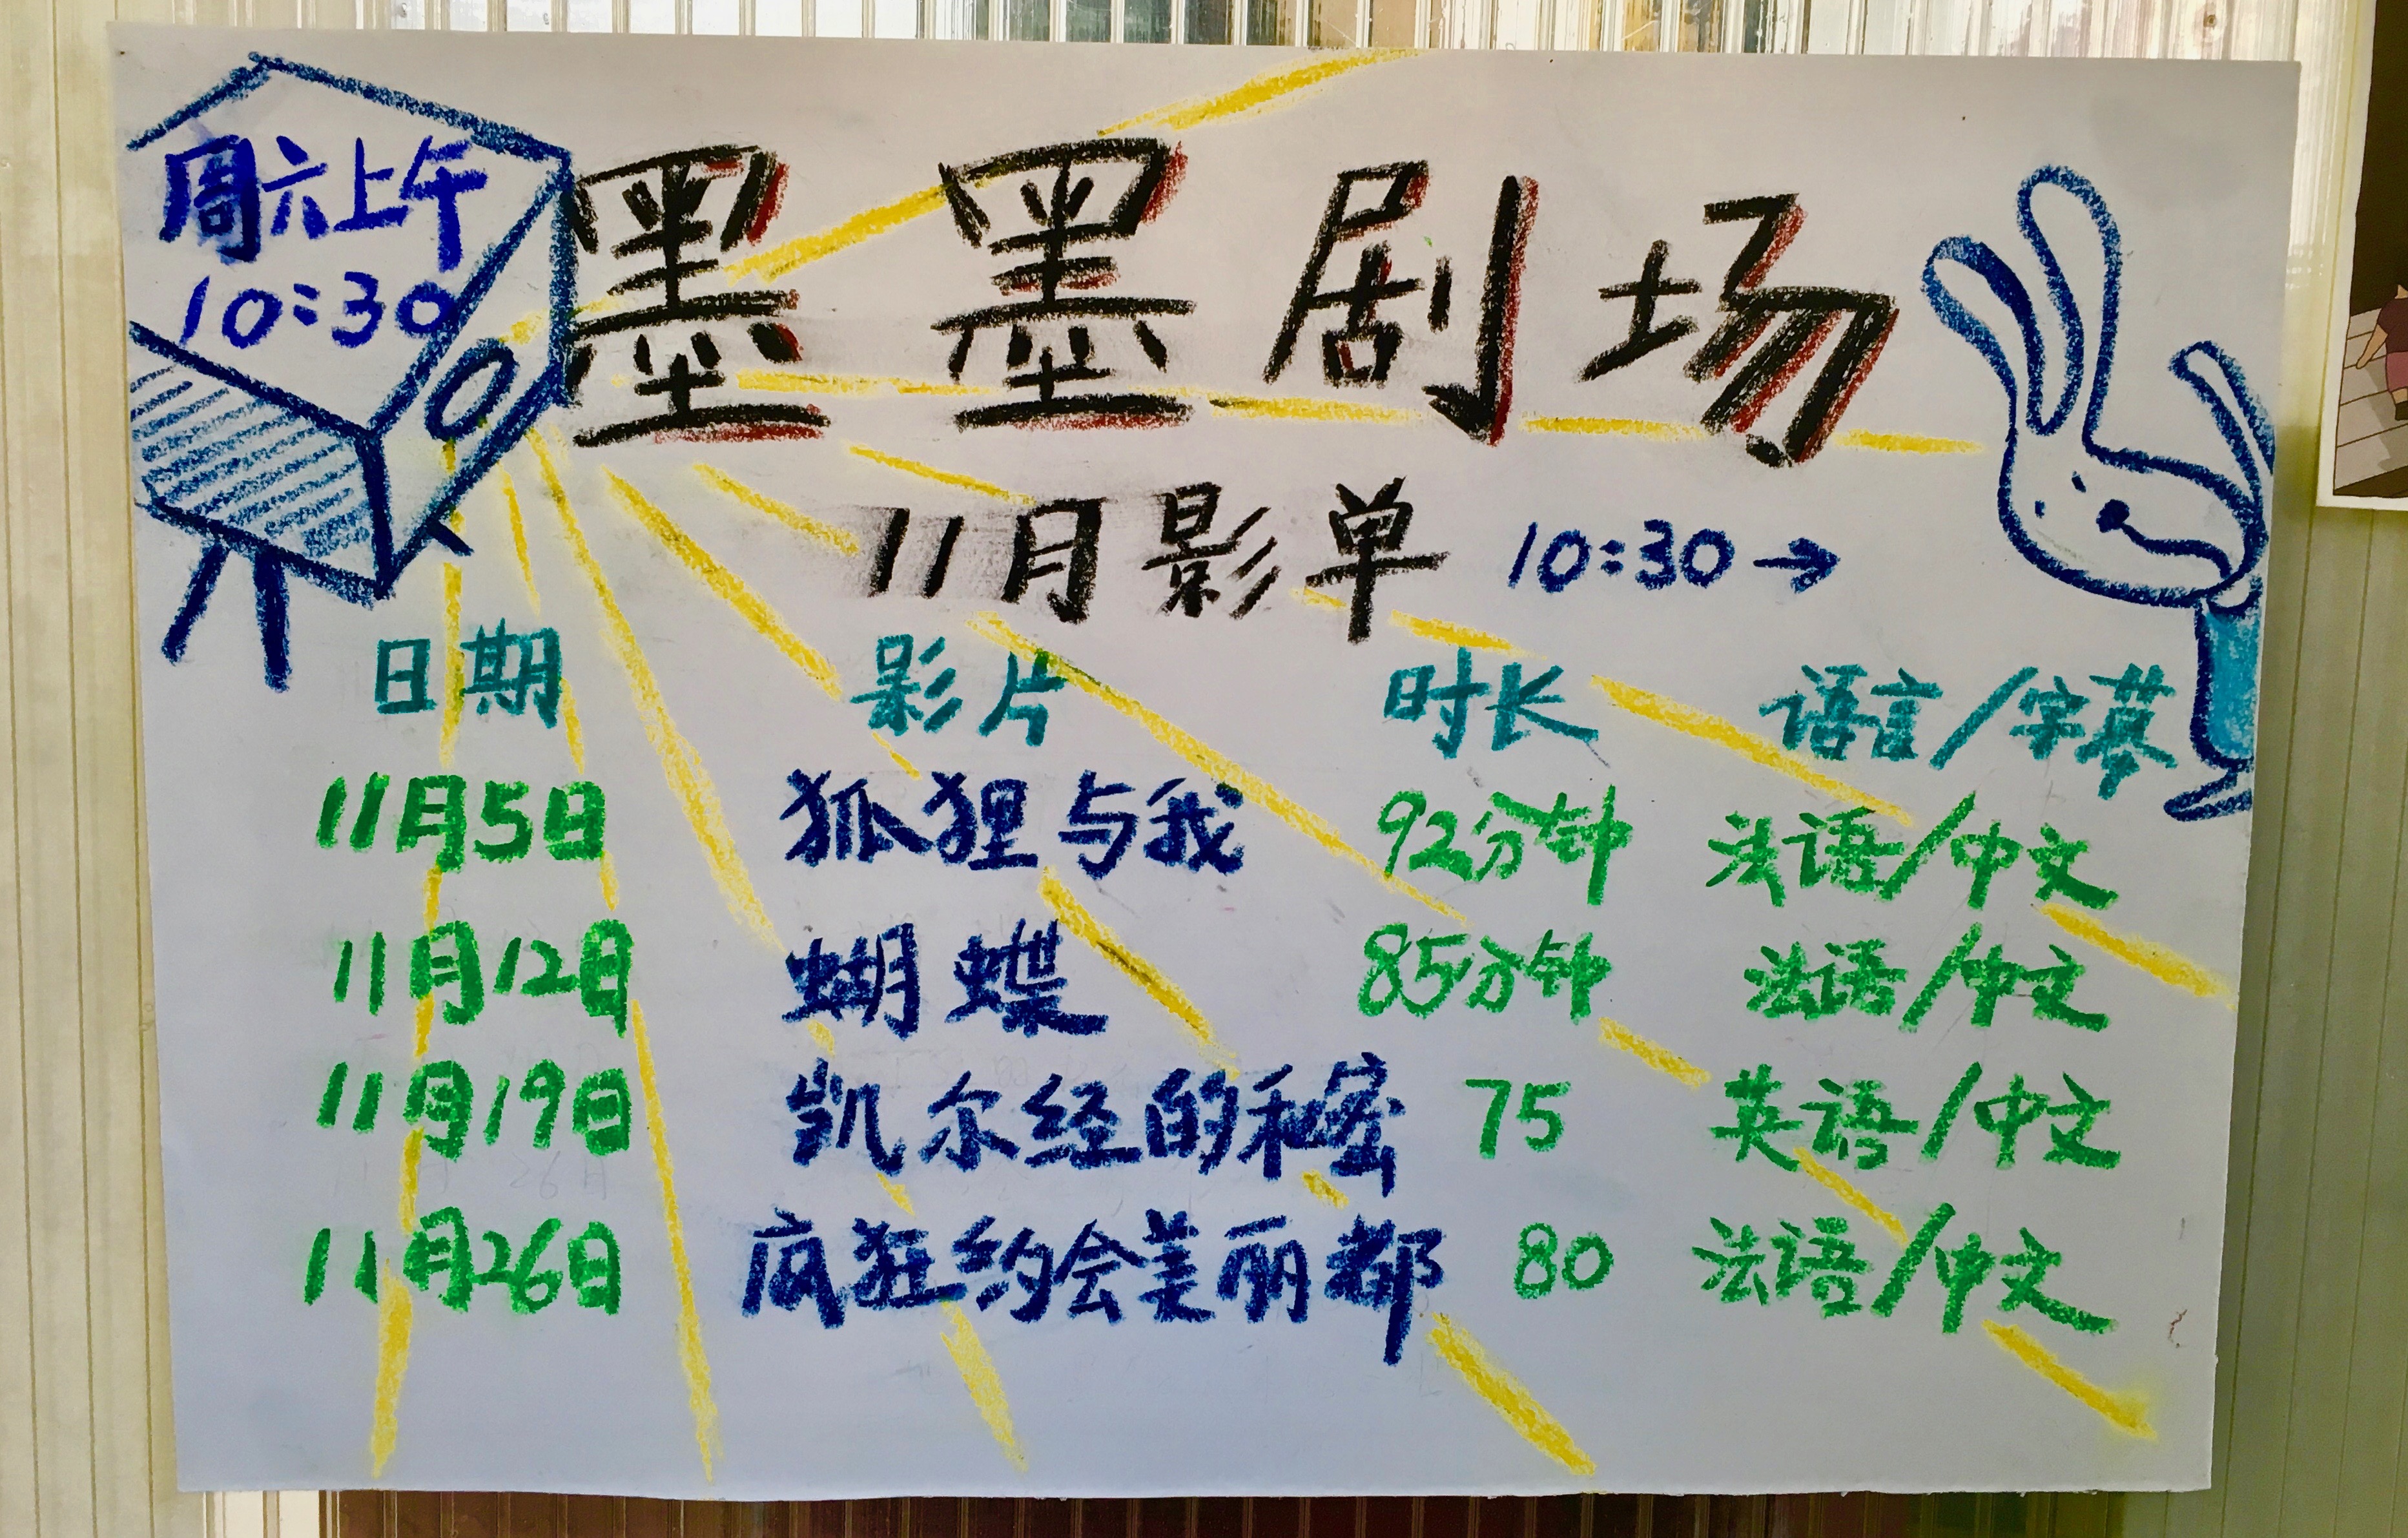 周六上午
10:30
墨墨剧场
11月影单 10:30→
日期 影片 时长 语言/字幕
11月5日 狐狸与我 92分钟 法语/中文
11月12日 蝴蝶 85分钟 法语/中文
11月19日 凯尔经的秘密 75 英语/中文
11月26日 疯狂约会美丽都 80 法语/中文